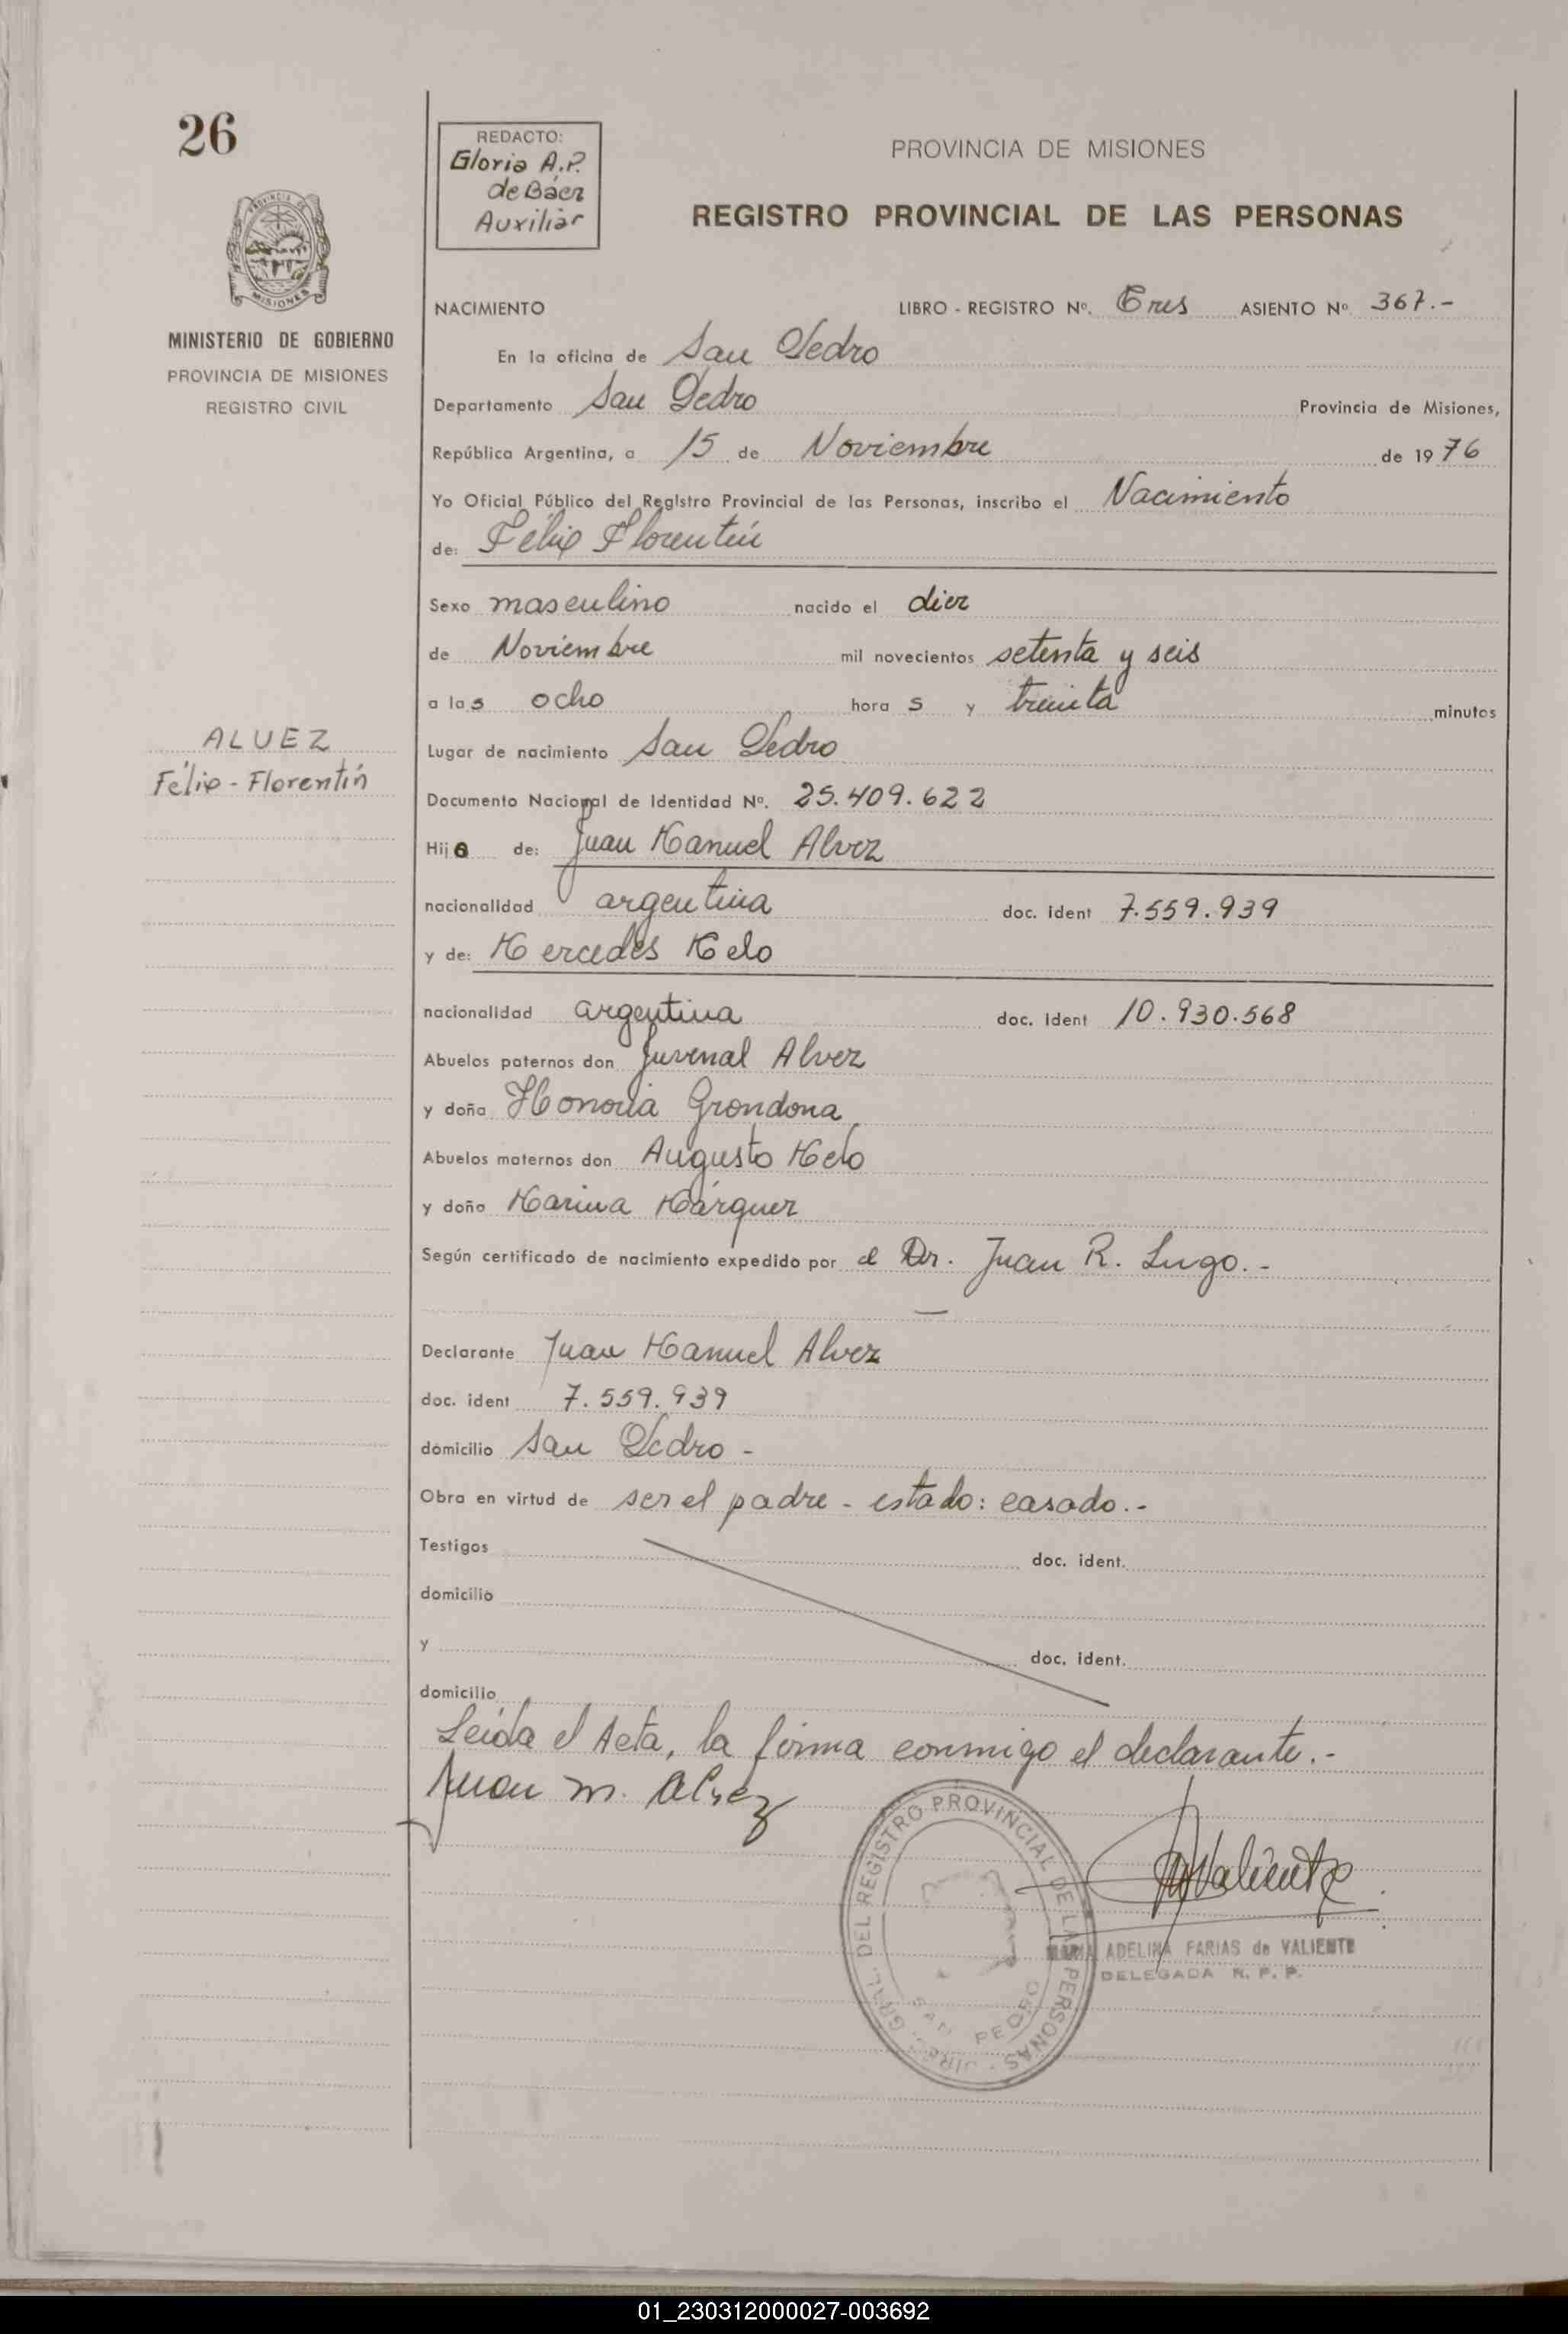 26
REDACTO:
Gloria A.P.
de Báez
Auxiliar
PROVINCIA DE MISIONES
REGISTRO PROVINCIAL DE LAS PERSONAS
MISIONES
MINISTERIO DE GOBIERNO
PROVINCIA DE MISIONES
REGISTRO CIVIL
NACIMIENTO LIBRO - REGISTRO Nº. Tres ASIENTO Nº. 367.-
En la oficina de San Pedro
Departamento San Pedro Provincia de Misiones,
República Argentina, a 15 de Noviembre de 1976
Yo Oficial Público del Registro Provincial de las Personas, inscribo el Nacimiento
de: Félix Florentín
Sexo masculino nacido el diez
de Noviembre mil novecientos setenta y seis
a las ocho hora s y treinta minutos
ALVEZ
Félix - Florentín
Lugar de nacimiento San Pedro
Documento Nacional de Identidad Nº. 25.409.622
Hijo de: Juan Manuel Alvez
nacionalidad argentina doc. ident 7.559.939
y de: Mercedes Melo
nacionalidad argentina doc. ident 10.930.568
Abuelos paternos don Juvenal Alvez
y doña Honoria Grondona
Abuelos maternos don Augusto Melo
y doña Marina Márquez
Según certificado de nacimiento expedido por el Dr. Juan R. Lugo.-
Declarante Juan Manuel Alvez
doc. ident 7.559.939
domicilio San Pedro -
Obra en virtud de ser el padre - estado: casado.-
Testigos doc. ident.
domicilio
y doc. ident.
domicilio
Leída el Acta, la firma conmigo el declarante.-
Juan M. Alvez
Valiente
DEL REGISTRO PROVINCIAL DE LAS PERSONAS
SAN PEDRO
MARIA ADELINA FARIAS de VALIENTE
DELEGADA R. P. P.
01_230312000027-003692